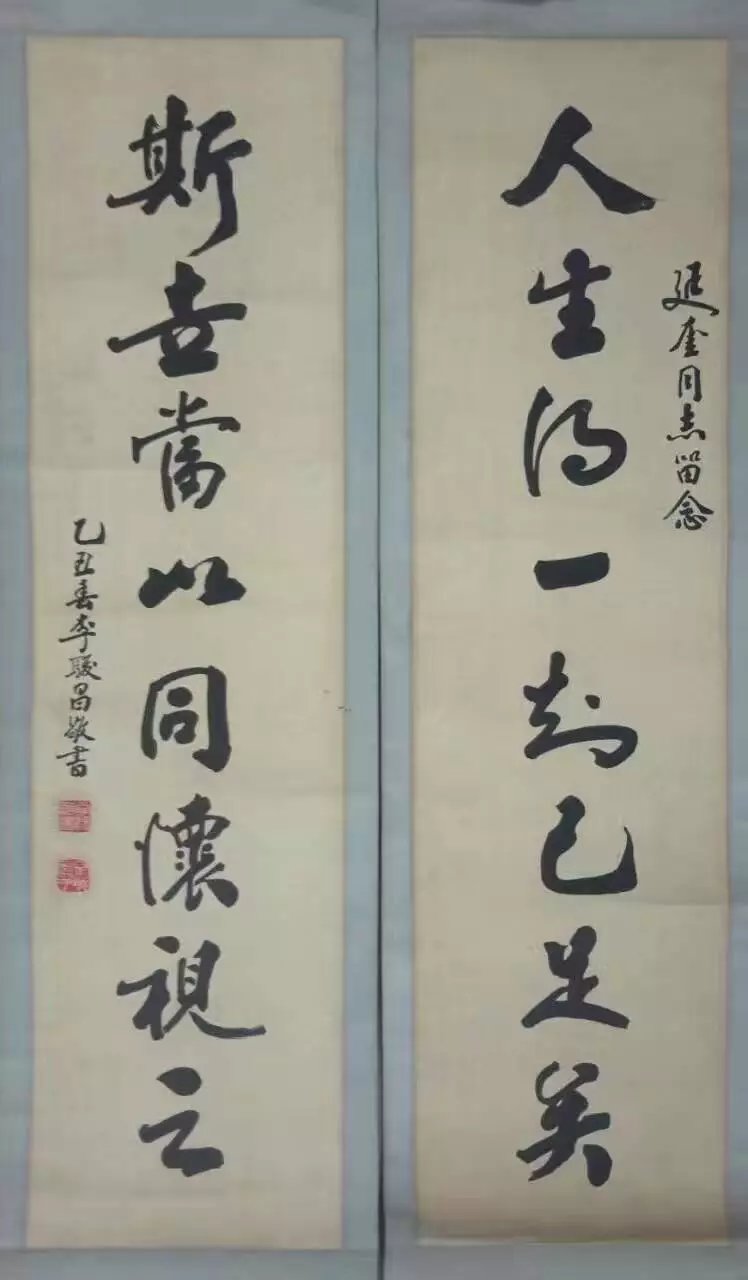 人生得一知己足矣
延奎同志留念
斯世當以同懷視之
乙丑春李駿昌敬書